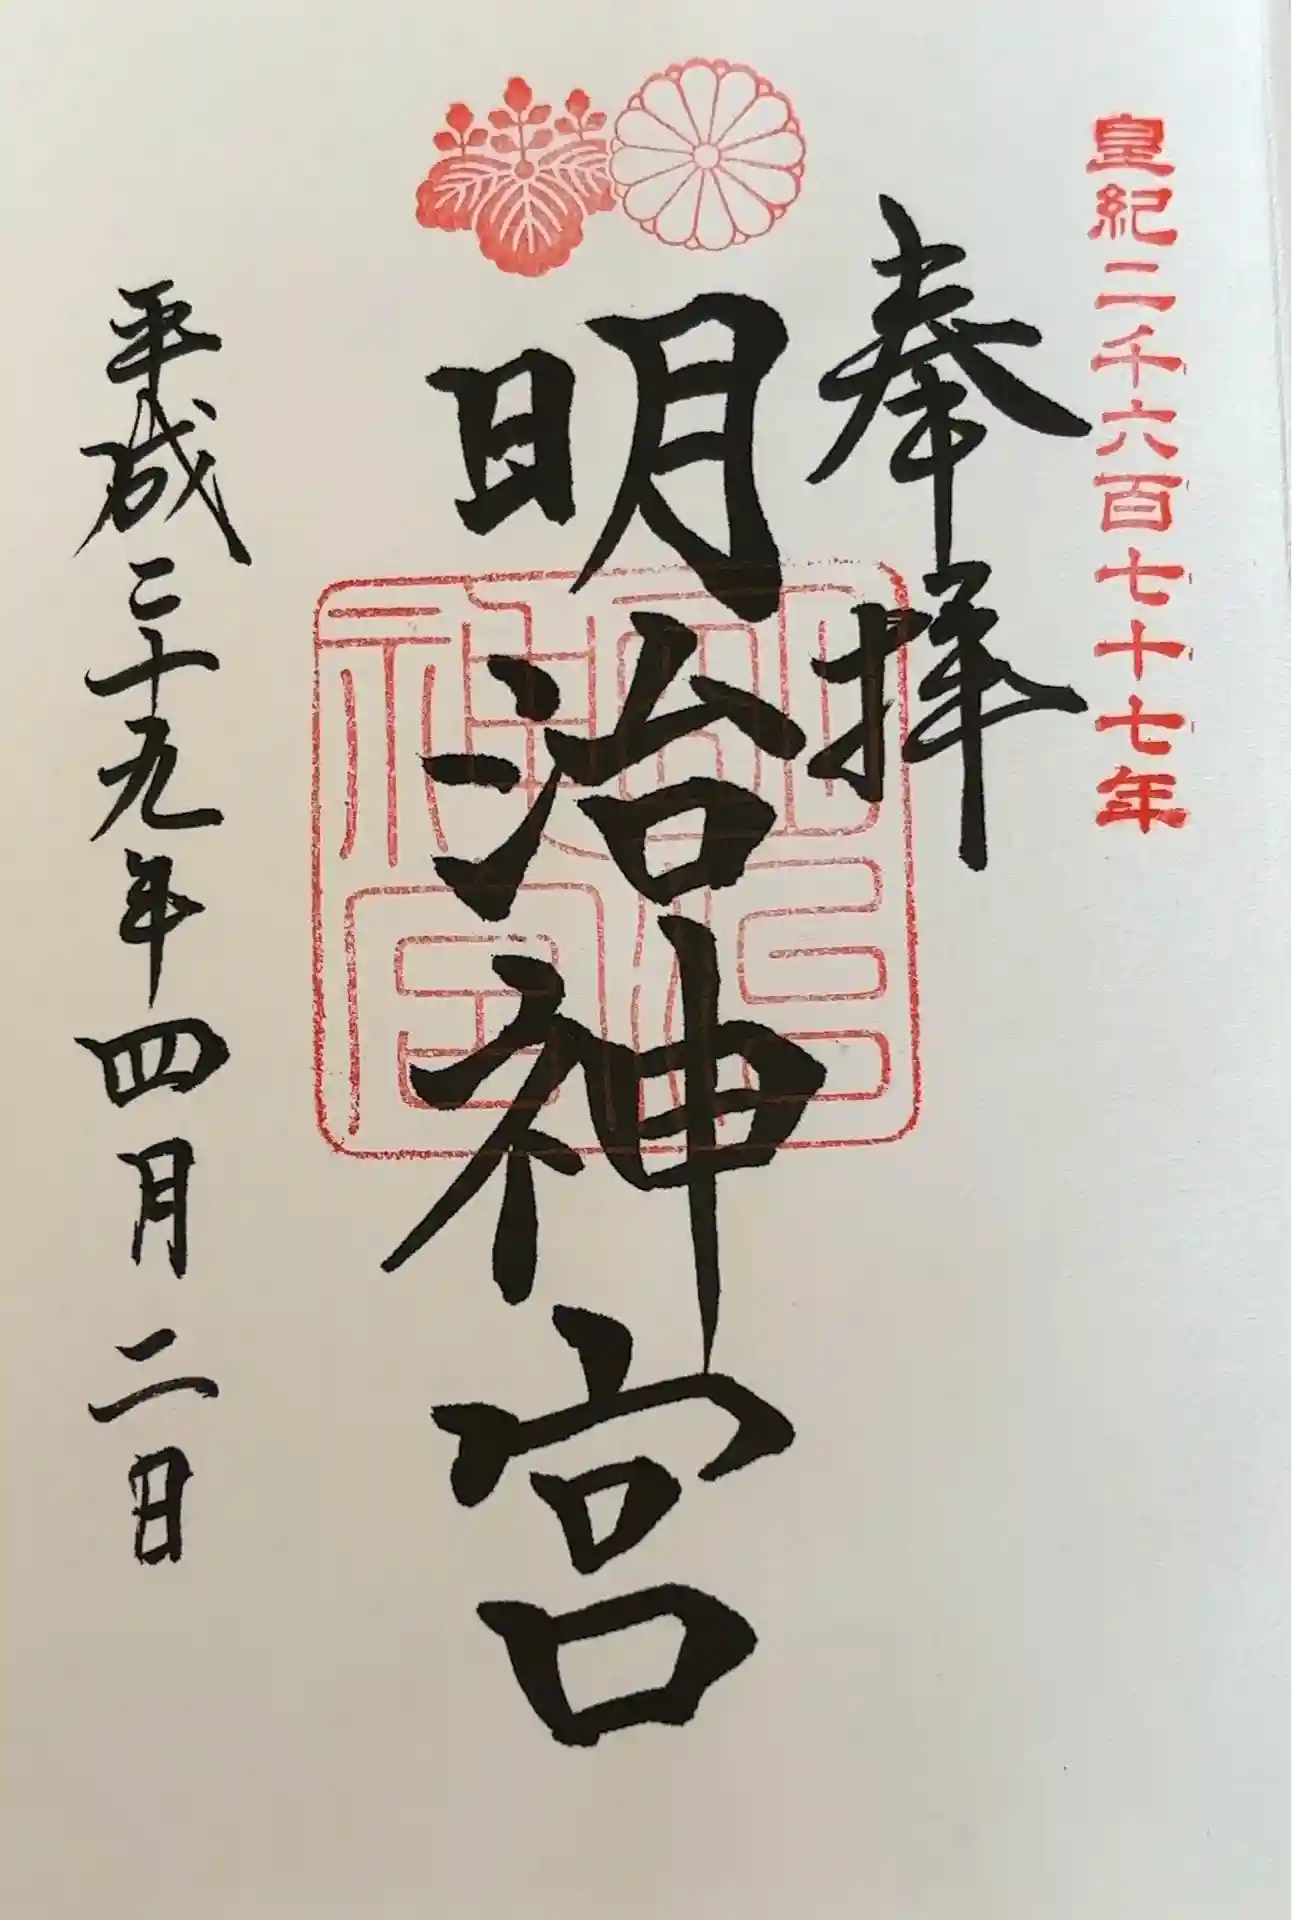 皇紀二千六百七十七年
奉拝
明治神宮
明治神宮
平成二十九年四月二日